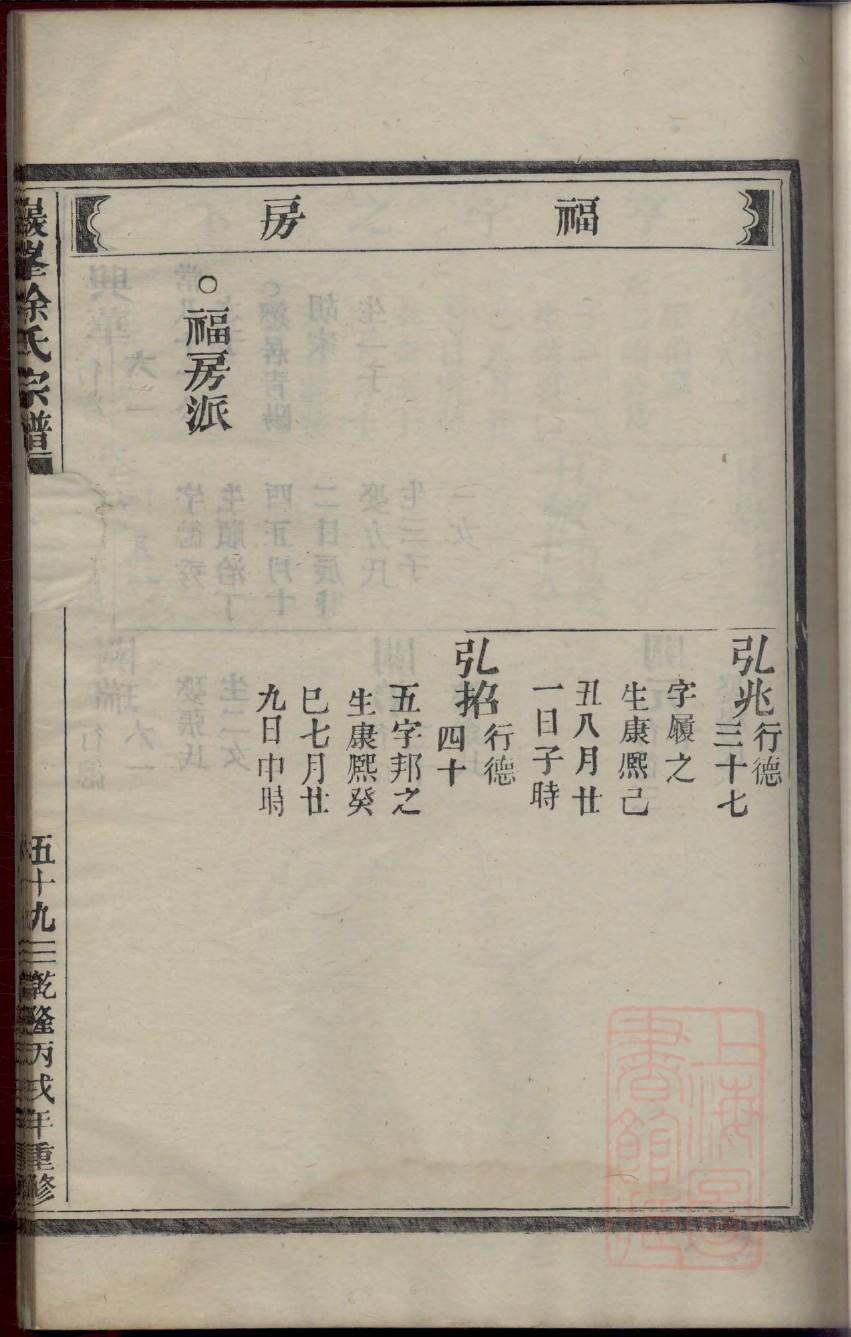 福房
弘兆行德
三十七
字履之
生康熙己
丑八月廿
一日子時
弘招行德
四十
五字邦之
生康熙癸
巳七月廿
九日申時
○福房派
巖峯徐氏宗譜
五十九
乾隆丙戌年重修
上海圖
書館藏